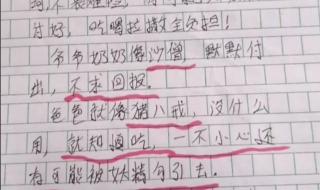 过好，吃喝拉撒全处担！
爷爷奶奶像沙僧，默默付
出，不求回报。
爸爸就像猪八戒，没什么
用，就知道吃，一不小心还
有可能被妖精勾引去。